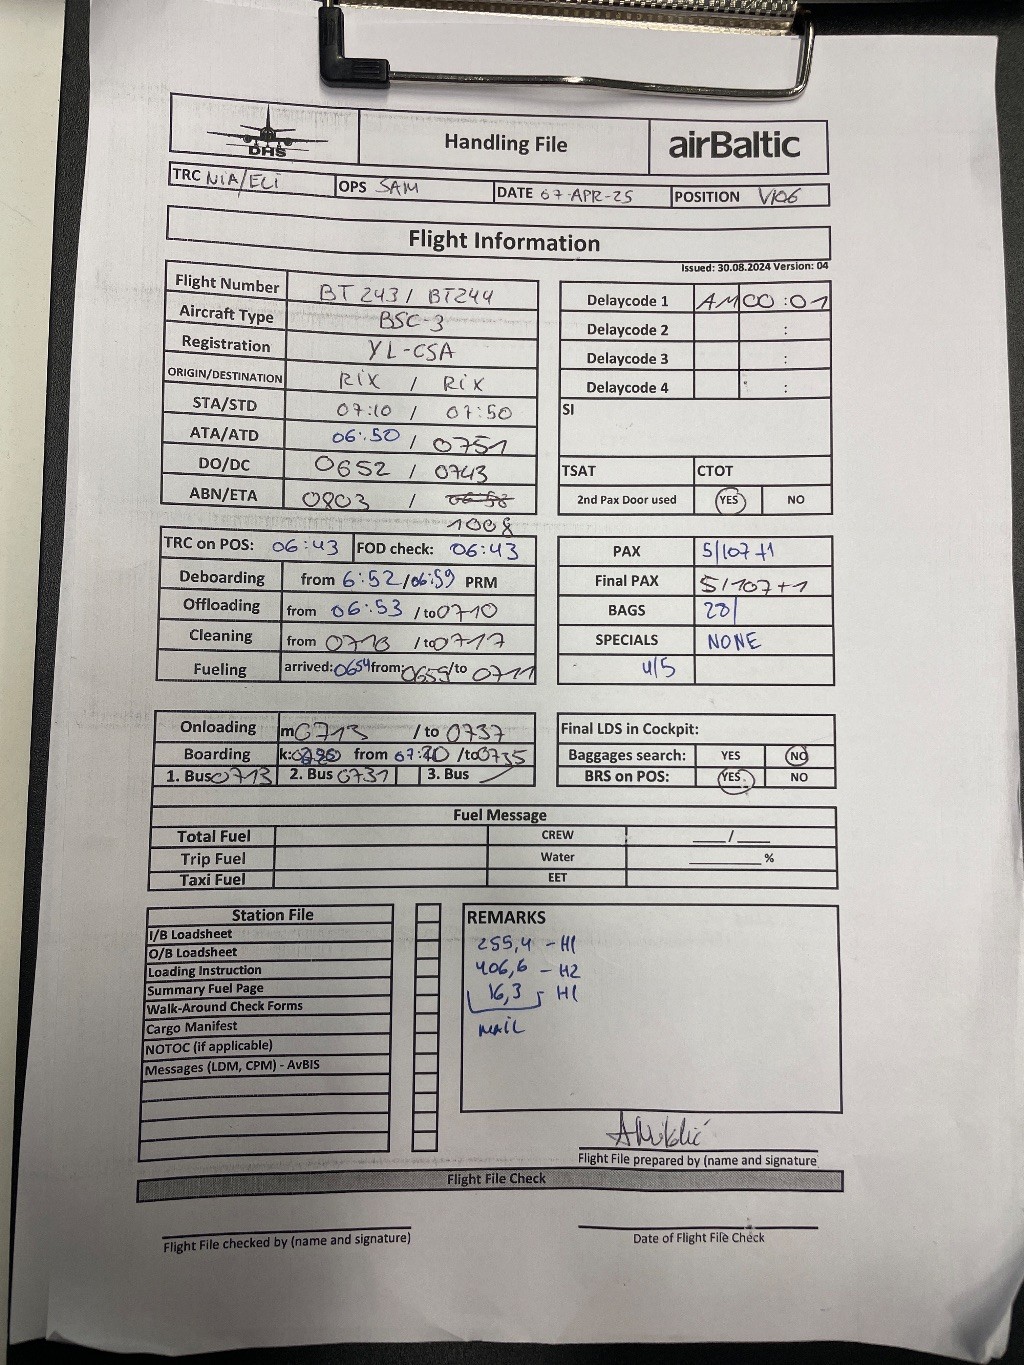 DHS
Handling File
airBaltic
TRC NIA/ELI OPS SAM DATE 07-APR-25 POSITION V106
Flight Information
Issued: 30.08.2024 Version: 04
Flight Number BT243 / BT244
Aircraft Type BSC-3
Registration YL-CSA
ORIGIN/DESTINATION RIX / RIX
STA/STD 07:10 / 07:50
ATA/ATD 06:50 / 0751
DO/DC 0652 / 0743
ABN/ETA 0803 / 0658
1008
Delaycode 1 AM 00:01
Delaycode 2 :
Delaycode 3 :
Delaycode 4 :
SI
TSAT CTOT
2nd Pax Door used YES NO
TRC on POS: 06:43 FOD check: 06:43
Deboarding from 6:52/06:59 PRM
Offloading from 06:53 /to 0710
Cleaning from /to 0717
Fueling arrived: 0654 from: 0659 /to 0711
PAX 5/107+1
Final PAX 5/107+1
BAGS 28/
SPECIALS NONE
4/5
Onloading m 0713 /to 0737
Boarding k: from 07:20 /to 0735
1. Bus 0713 2. Bus 0731 3. Bus
Final LDS in Cockpit:
Baggages search: YES NO
BRS on POS: YES NO
Fuel Message
Total Fuel CREW ___/___
Trip Fuel Water ________%
Taxi Fuel EET
Station File
I/B Loadsheet
O/B Loadsheet
Loading Instruction
Summary Fuel Page
Walk-Around Check Forms
Cargo Manifest
NOTOC (if applicable)
Messages (LDM, CPM) - AvBIS
REMARKS
255,4 - H1
406,6 - H2
16,3 H1
MAIL
Flight File prepared by (name and signature
Flight File Check
Flight File checked by (name and signature)
Date of Flight File Check